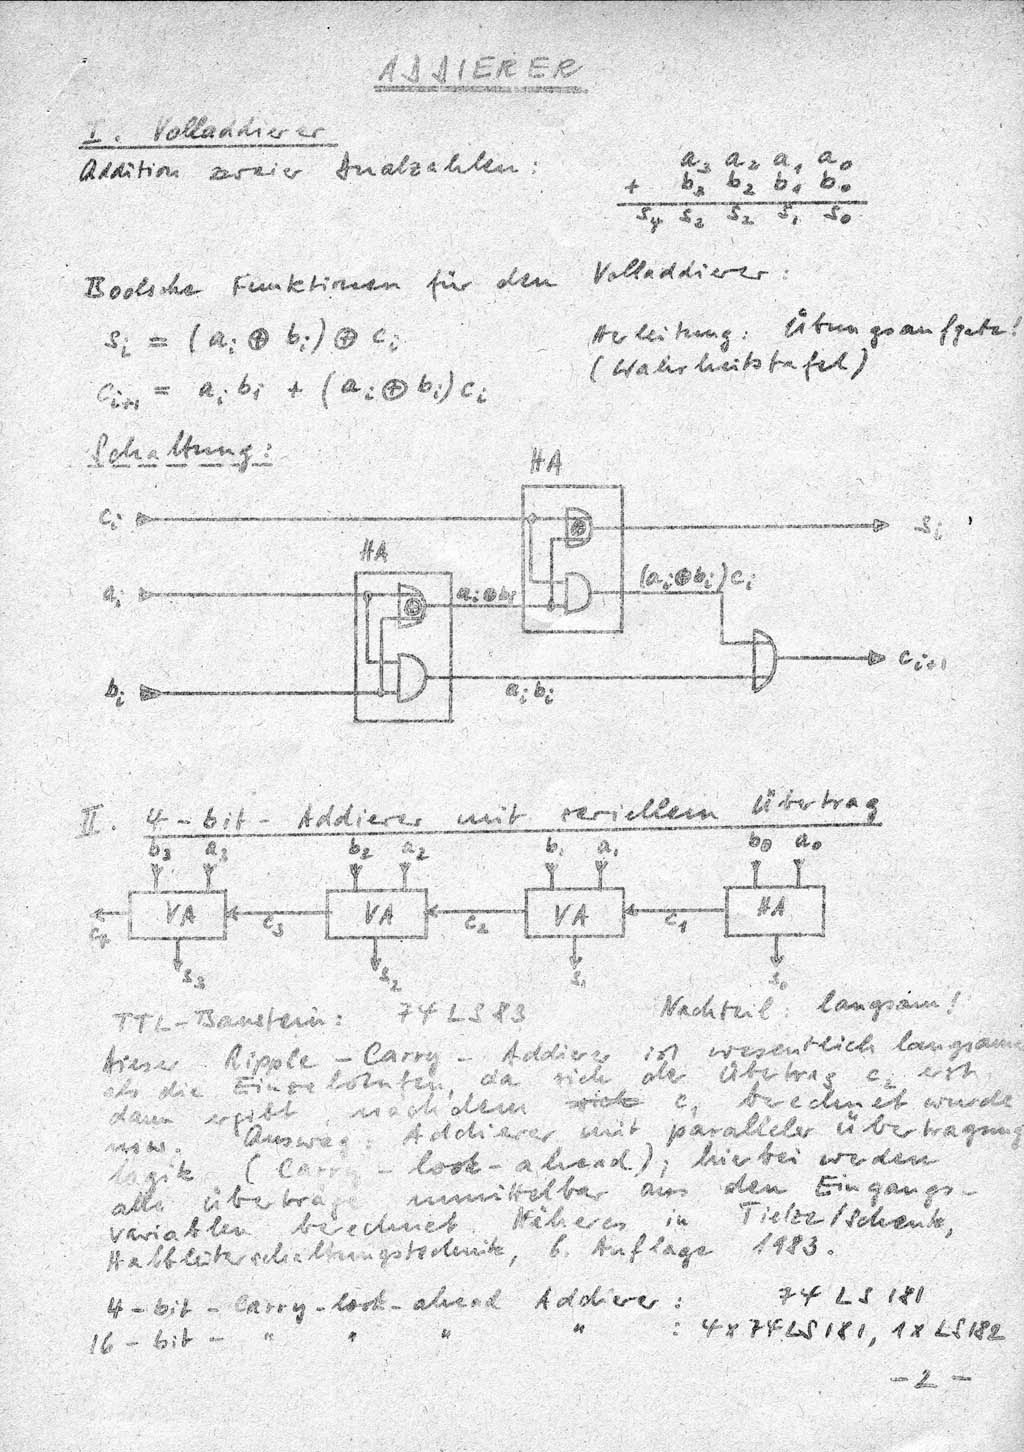 ADDIERER
I. Volladdierer
Addition zweier Dualzahlen:
a₃ a₂ a₁ a₀
+ b₃ b₂ b₁ b₀
s₄ s₂ s₂ s₁ s₀
Boolsche Funktionen für den Volladdierer:
sᵢ = (aᵢ ⊕ bᵢ) ⊕ cᵢ
Herleitung: Übungsaufgabe!
cᵢ₊₁ = aᵢbᵢ + (aᵢ⊕bᵢ)cᵢ
(Wahrheitstafel)
Schaltung:
HA
cᵢ
sᵢ
HA
aᵢ
aᵢ⊕bᵢ
(aᵢ⊕bᵢ)cᵢ
cᵢ₊₁
bᵢ
aᵢbᵢ
II. 4-bit-Addierer mit seriellem Übertrag
b₃ a₃ b₂ a₂ b₁ a₁ b₀ a₀
VA VA VA HA
c₄ c₃ c₂ c₁
s₃ s₂ s₁ s₀
TTL-Baustein: 74LS83 Nachteil: langsam!
Dieser Ripple-Carry-Addierer ist wesentlich langsamer
als die Einzelstufen, da sich der Übertrag c₂ erst
dann ergibt nachdem c₁ berechnet wurde
usw. Ausweg: Addierer mit paralleler Übertragung
logik (Carry-look-ahead); hierbei werden
alle Überträge unmittelbar aus den Eingangs-
variablen berechnet. Näheres in Tietze/Schenk,
Halbleiterschaltungstechnik, 6. Auflage 1983.
4-bit-Carry-look-ahead Addierer: 74LS181
16-bit- " " " " : 4x74LS181, 1xLS182
-2-